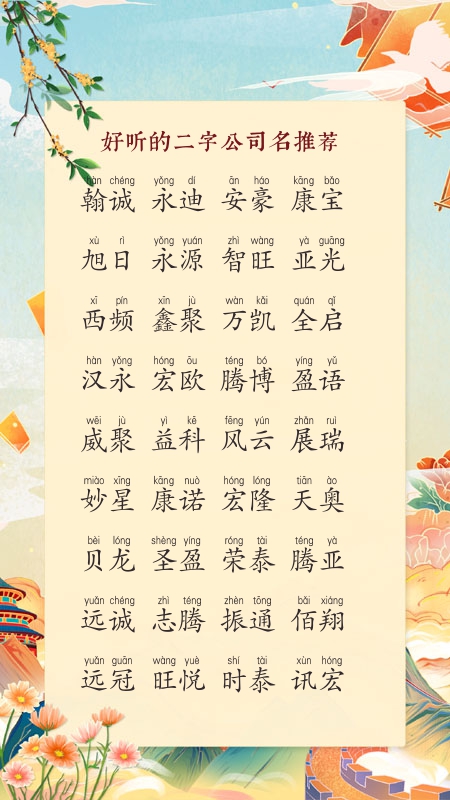 好听的二字公司名推荐
hàn chéng yǒng dí ān háo kāng bǎo
翰诚 永迪 安豪 康宝
xù rì yǒng yuán zhì wàng yà guāng
旭日 永源 智旺 亚光
xī pín xīn jù wàn kǎi quán qǐ
西频 鑫聚 万凯 全启
hàn yǒng hóng ōu téng bó yíng yǔ
汉永 宏欧 腾博 盈语
wēi jù yì kē fēng yún zhǎn ruì
威聚 益科 风云 展瑞
miào xīng kāng nuò hóng lóng tiān ào
妙星 康诺 宏隆 天奥
bèi lóng shèng yíng róng tài téng yà
贝龙 圣盈 荣泰 腾亚
yuǎn chéng zhì téng zhèn tōng bǎi xiáng
远诚 志腾 振通 佰翔
yuǎn guān wàng yuè shí tài xùn hóng
远冠 旺悦 时泰 讯宏